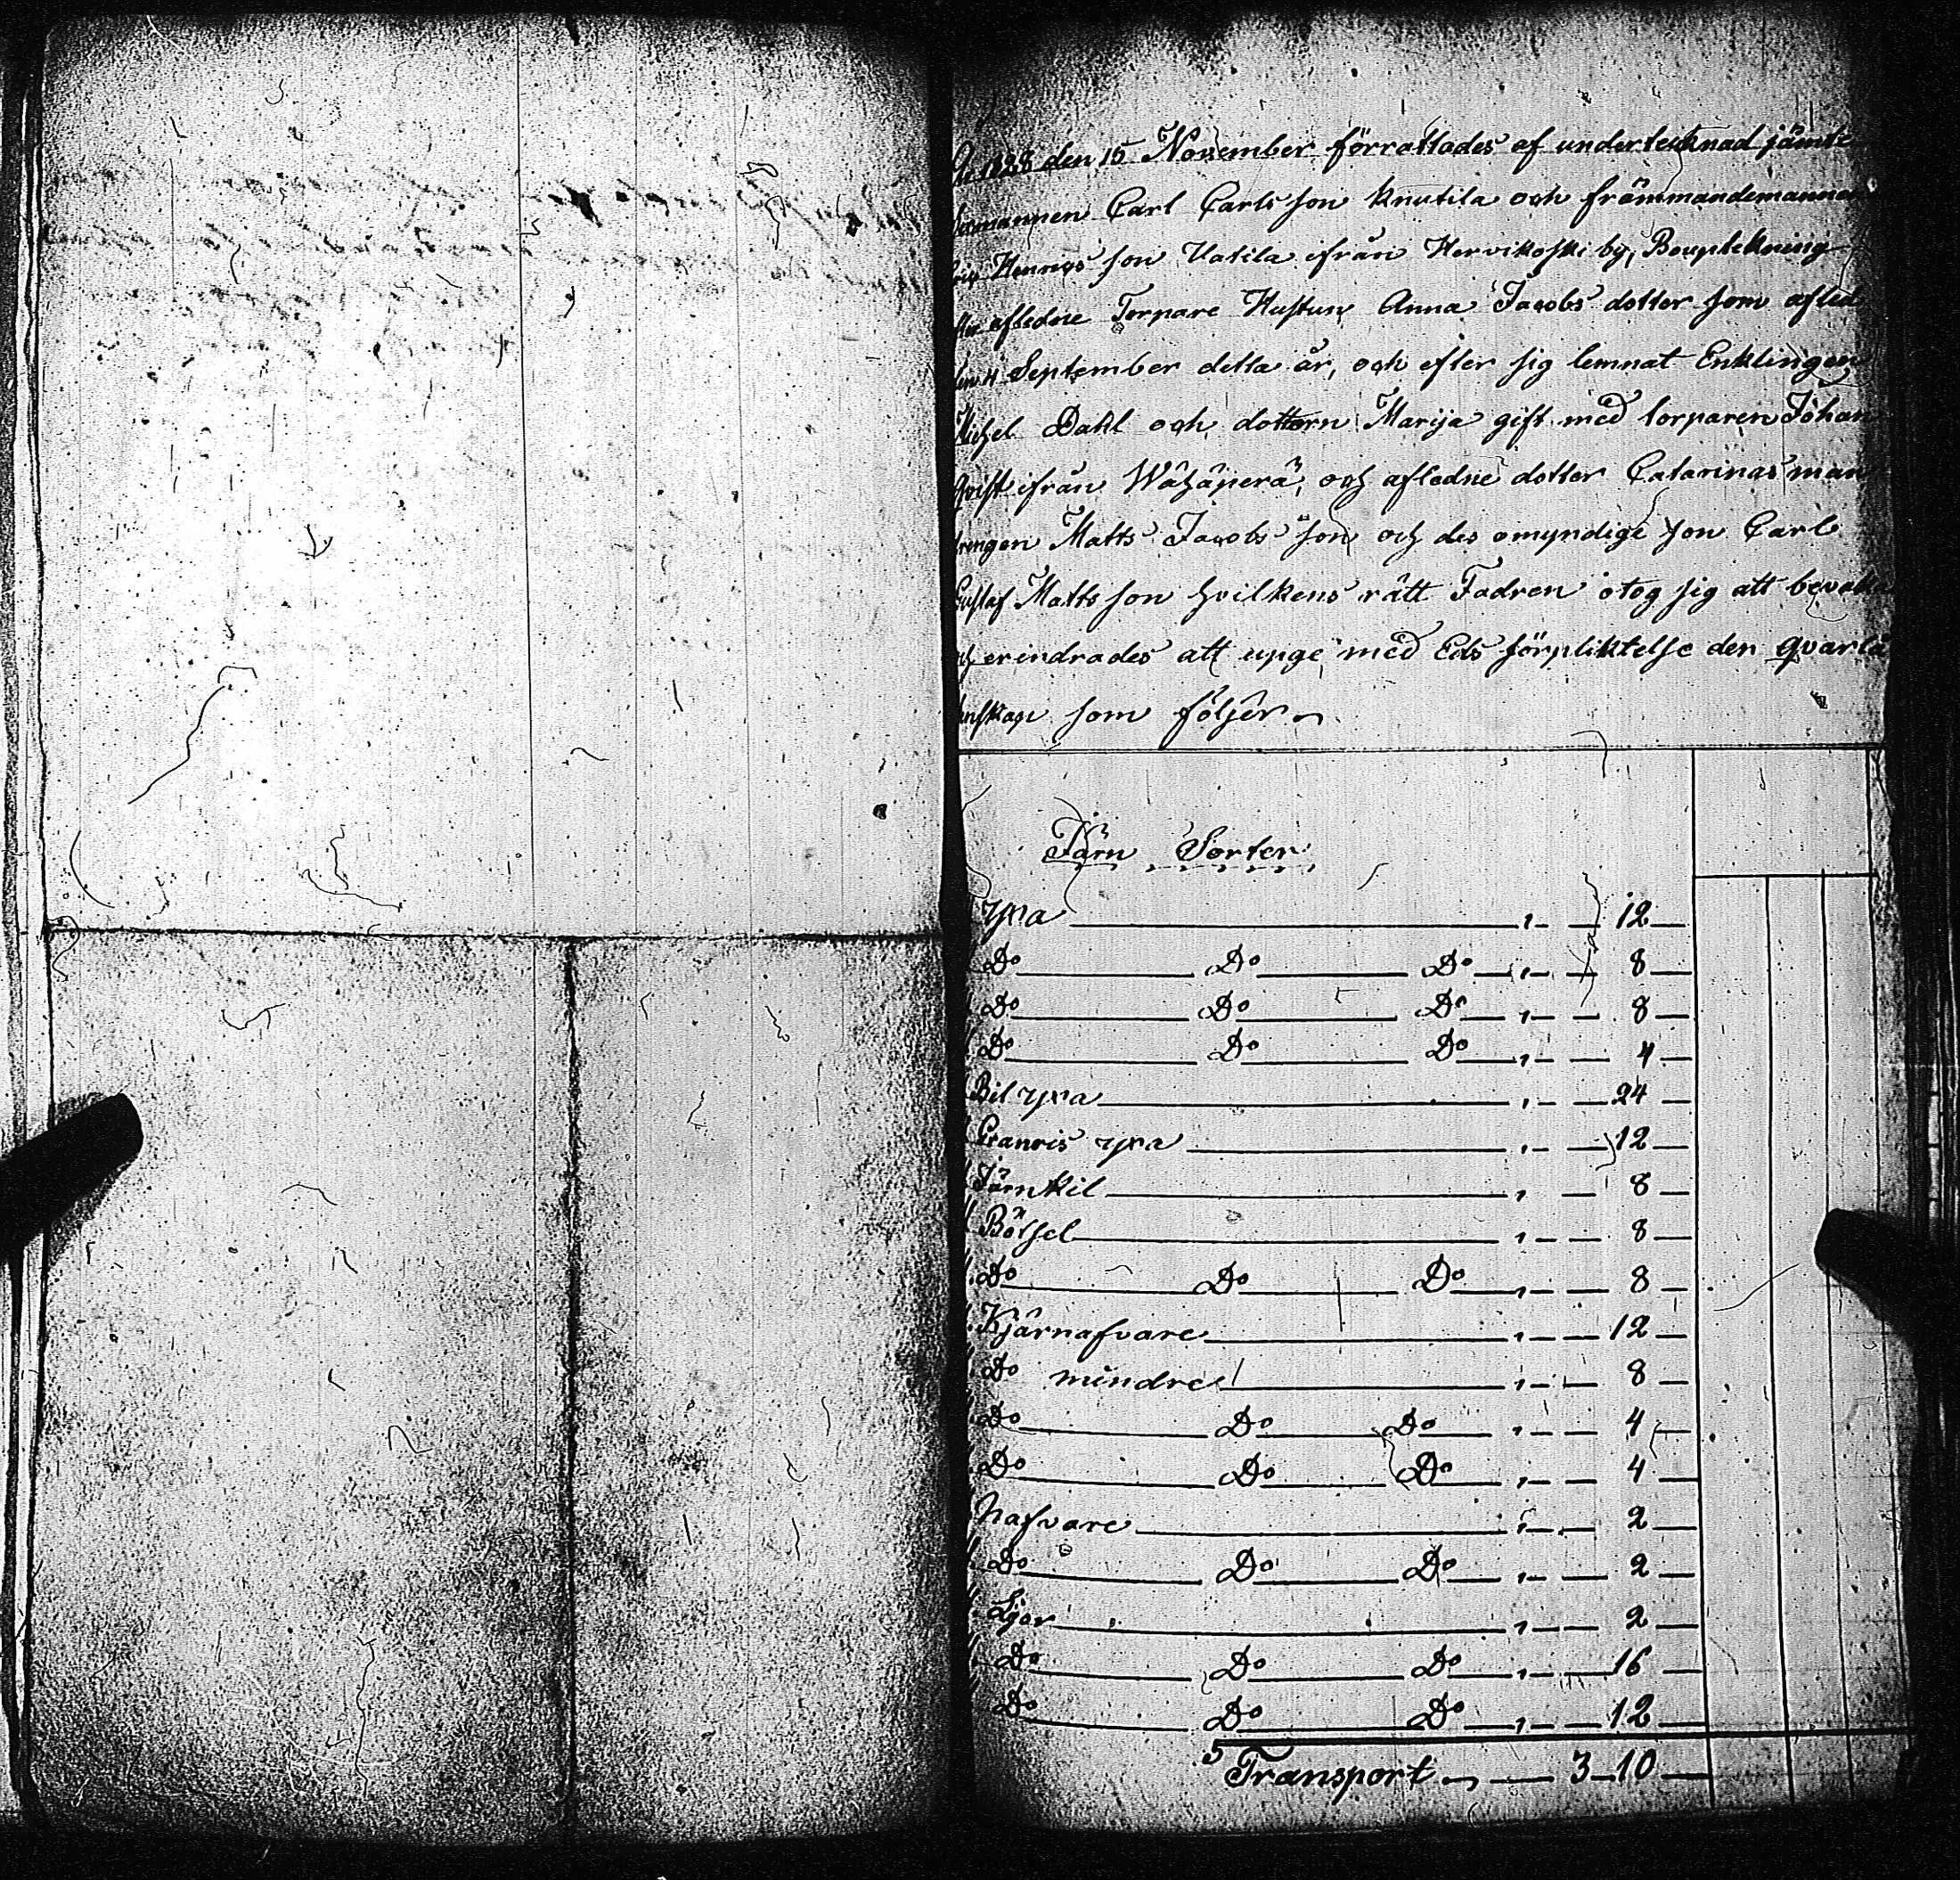 1828 den 15 November förrättades af undertecknad jämte
Carl Carls son Knutila och främmandemannen
Hennes son Uatila ifrån Hervikoski by, Bouptekning
afledne Torpare Hustun Anna Jacobs dotter som afled
September detta år, och efter sig lemnat Enklingen
Michel Dahl och dottern Marija gift med torparen Johan
Qvist ifrån Wähäperä, och afledne dotter Catarinas man
drengen Matts Jacobs son och des omyndige son Carl
Gustaf Matts son hvilkens rätt Fadren åtog sig att bevaka
och erindrades att upge med Eds förpliktelse den qvarlå
enskap som följer
Järn Sorter
yxa 12
Do Do Do 8
Do Do Do 8
Do Do Do 4
Bil yxa 24
yxa 12
Järnkil 8
Bötsel 8
Do Do Do 8
Kjärnafvare 12
Do mindre 8
Do Do Do 4
Do Do Do 4
Nafvare 2
Do Do Do 2
Ljar 2
Do Do Do 16
Do Do Do 12
Transport 3 10